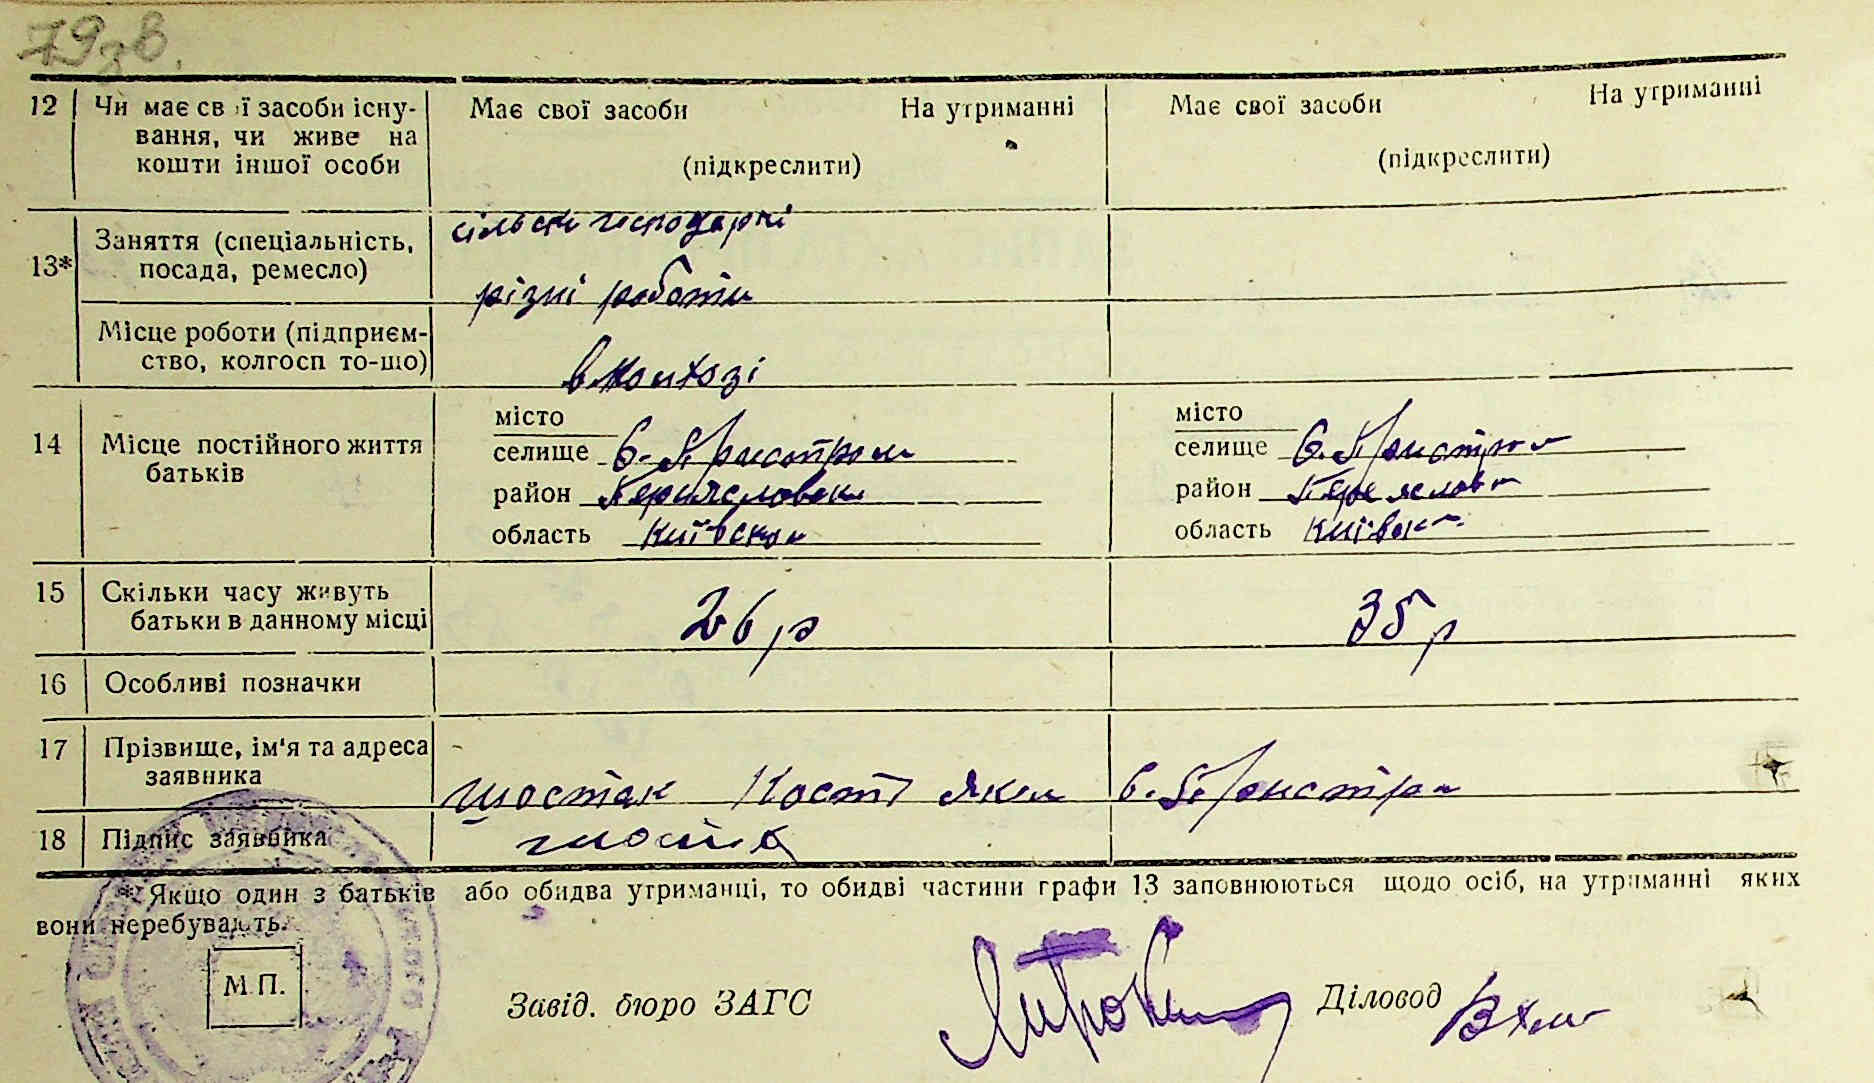 79зв.
12 Чи має свої засоби існування, чи живе на кошти іншої особи
Має свої засоби На утриманні
(підкреслити)
Має свої засоби На утриманні
(підкреслити)
13* Заняття (спеціальність, посада, ремесло)
сільськ господаркі
різні роботи
Місце роботи (підприємство, колгосп то-що)
в колхозі
14 Місце постійного життя батьків
місто
селище с. Пристром
район Переяславськ
область Київська
місто
селище с. Пристром
район Переяслав
область Київськ
15 Скільки часу живуть батьки в данному місці
26 р
35 р
16 Особливі позначки
17 Прізвище, ім'я та адреса заявника
Шостак Кост Яким с. Пристром
18 Підпис заявника
* Якщо один з батьків або обидва утриманці, то обидві частини графи 13 заповнюються щодо осіб, на утриманні яких
вони перебувають.
М.П.
Завід. бюро ЗАГС
Діловод